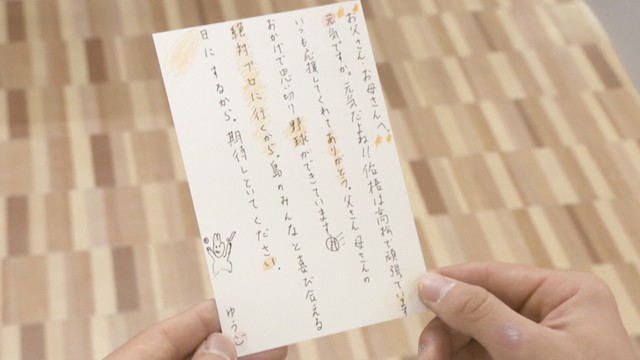 お父さん、お母さんへ。
元気ですか。元気だよね!!佑梧は高松で頑張ています
いつも応援してくれてありがとう。父さん母さんの
おかげで思い切り野球ができています。
絶対プロに行くから。島のみんなと喜び合える
日にするから。期待しといてください。
ゆうご